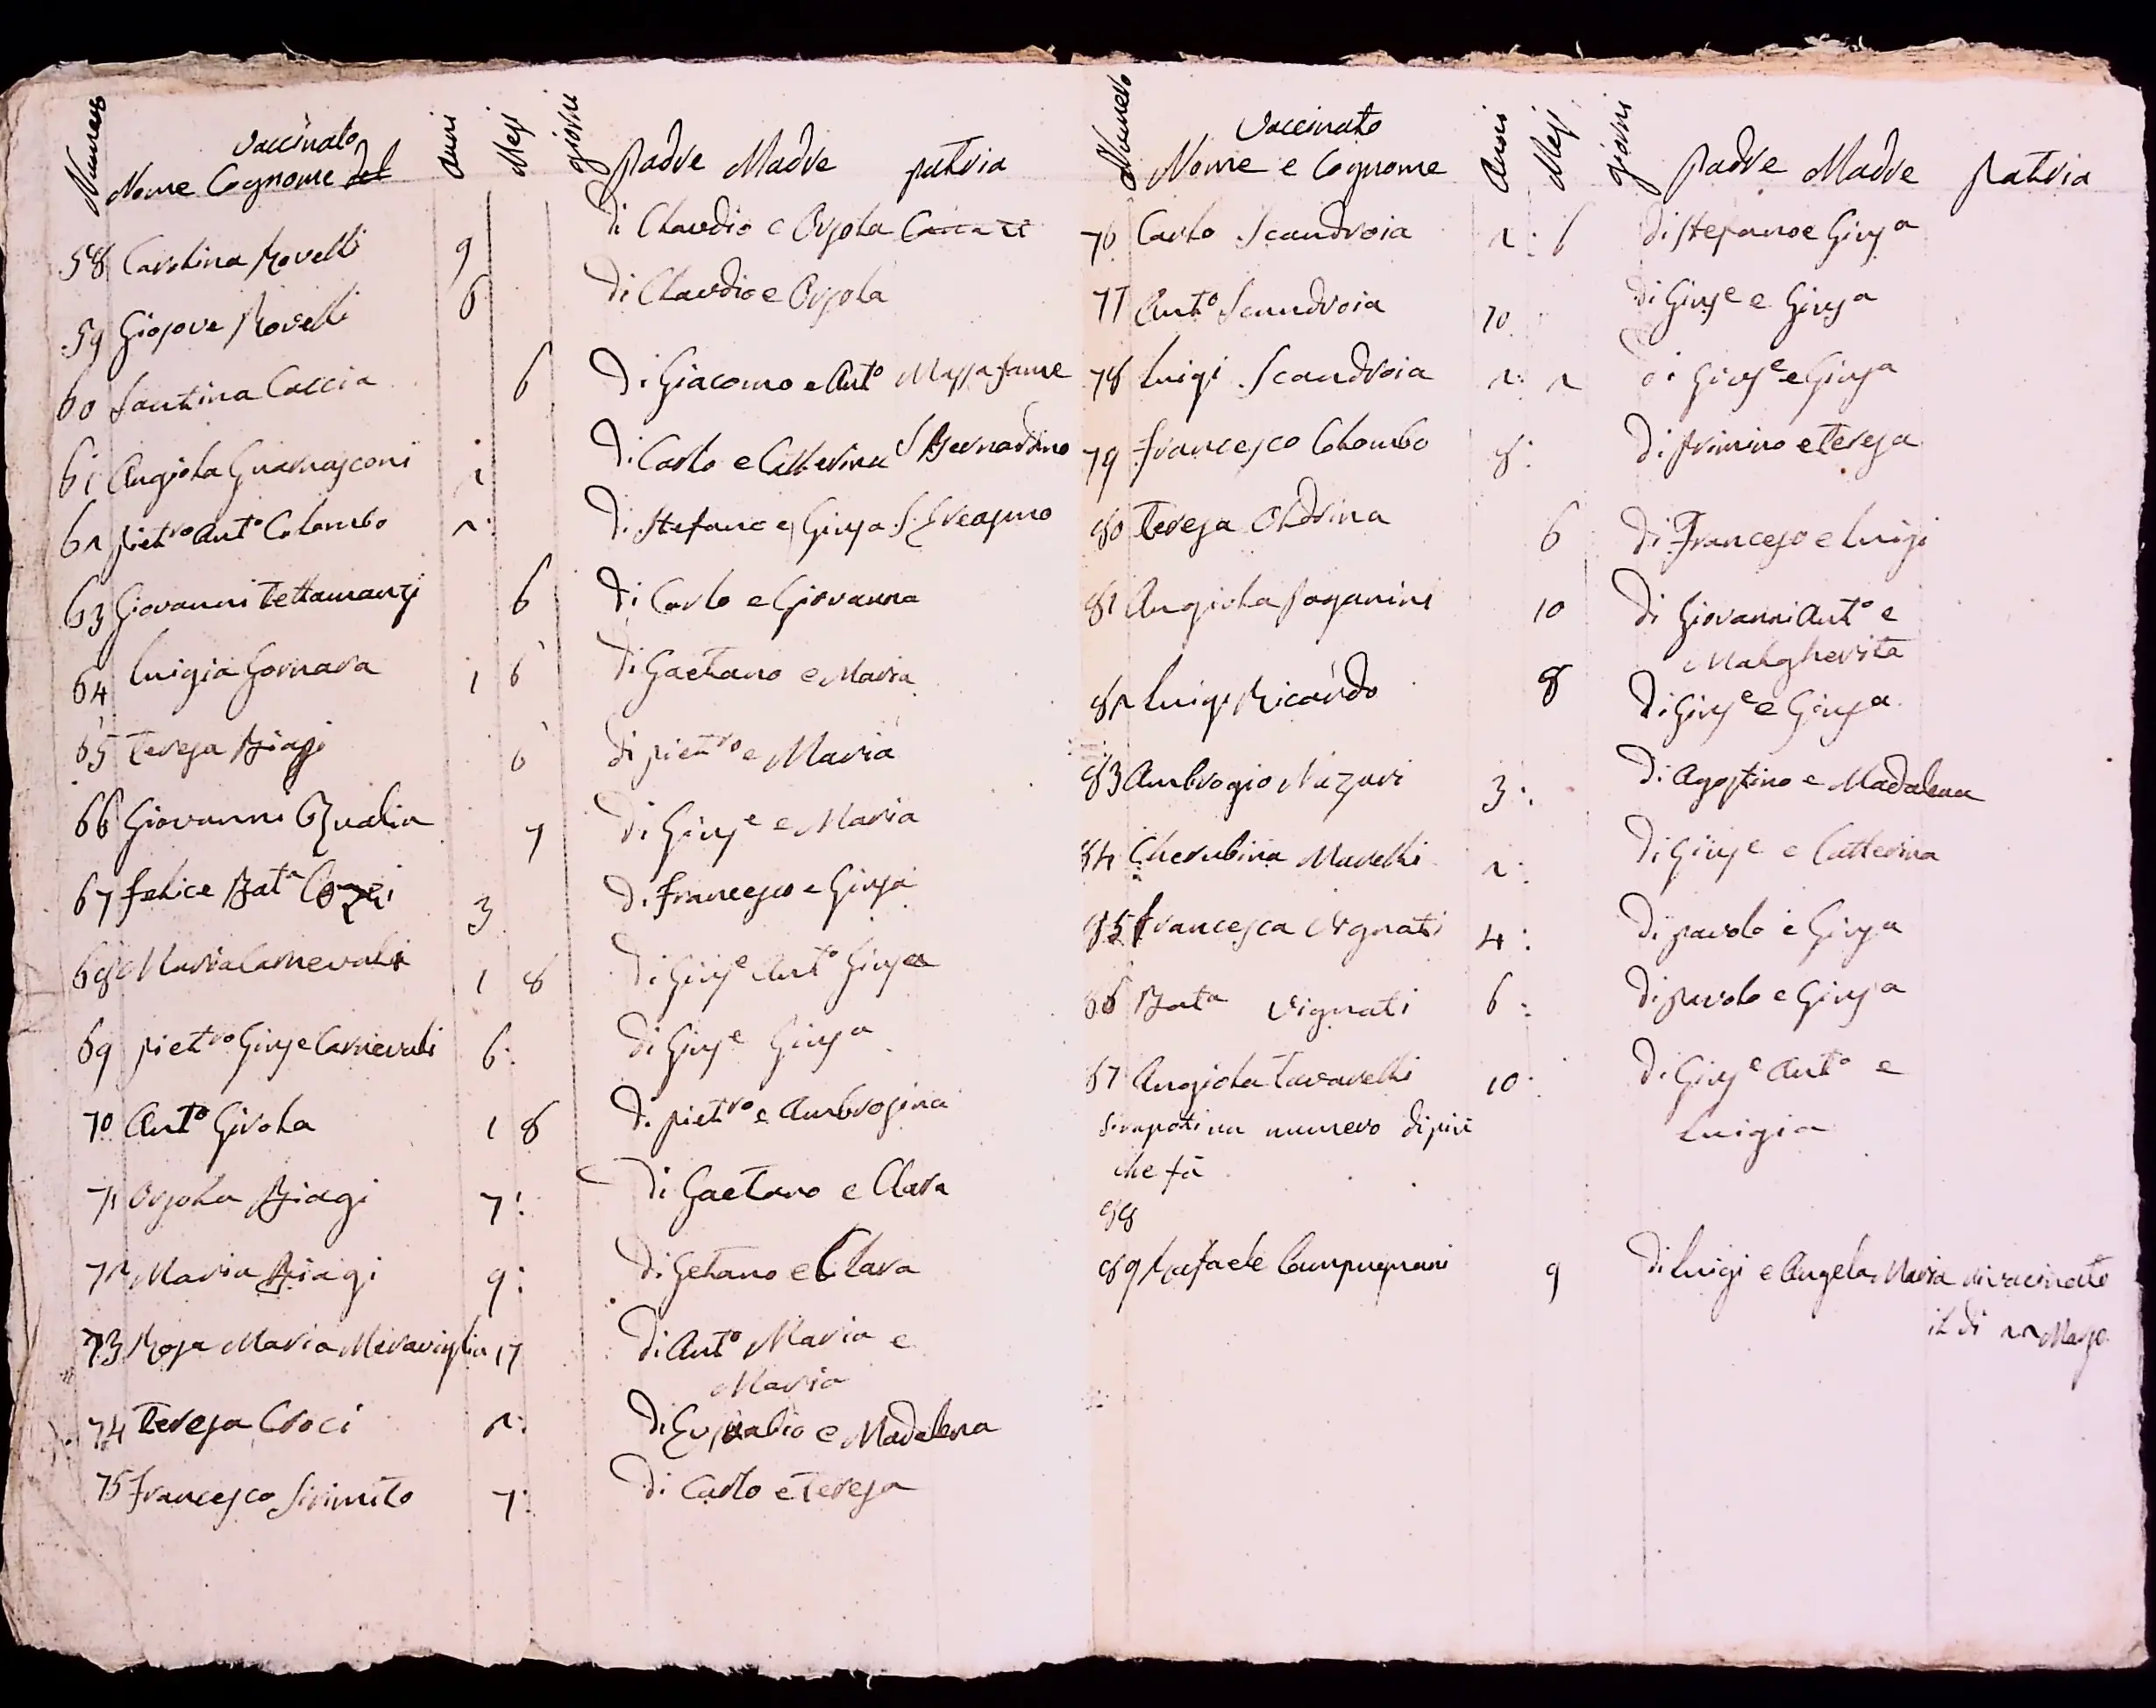 Numero Vaccinato Nome Cognome del Anni Mesi giorni Padre Madre patria
58 Carolina Rovelli 9 di Claudio e Orsola
59 Giosove Rovelli 6 di Claudio e Orsola
60 Santina Caccia 6 di Giacomo e Antº Massafame
61 Angiola Guarnasconi 2 di Carlo e Catterina S Bernardino
62 pietro Antº Colombo 2: di Stefano e Giusa S.
63 Giovanni Tettamanzi 6 di Carlo e Giovanna
64 Luigia Gornara 1 6 di Gaetano e Maria
65 Teresa Biagi 6 di pietro e Maria
66 Giovanni 7 di Giuse e Maria
67 felice Bata 3 di francesco e Giusa
68 Maria Carnevali 1 8 di Giuse Antº Giusa
69 pietro Giuse Carnevali 6: di Giuse Giusa
70 Antº Girola 1 8 di pietro e Ambrosina
71 Orsola Biagi 7: di Gaetano e Clara
72 Maria Biagi 9: di Getano e Clara
73 Rosa Maria Miraviglia 17 di Antº Maria e
Maria
74 Teresa Croci 2: di e Madalena
75 francesco 7: di Carlo e Teresa
Numero Vaccinato Nome e Cognome Anni Mesi giorni Padre Madre Patria
76 Carlo Scandroia 2: 6 di Stefano e Giusa
77 Antº Scandroia 10 di Giuse e Giusa
78 Luigi Scandroia 2: 2 di Giuse e Giusa
79 francesco Colombo 8: di e Teresa
80 Teresa Oldrina 6 di Francesco e Luigi
81 Angiola Paganini 10 di Giovanni Antº e
Malgherita
82 Luigi Ricardo 8 di Giuse e Giusa
83 Ambrogio Nazari 3: di Agostino e Madalena
84 Cherubina Marelli 2: di Giuse e Catterina
85 francesca Vignati 4: di pavolo e Giusa
86 Bata Vignati 6: di pavolo e Giusa
87 Angiola Tavarelli 10: di Giuse Antº e
Luigia
numero di più
che fà
88
89 Rafaele Campagnani 9 di Luigi e Angela Maria
il di 22